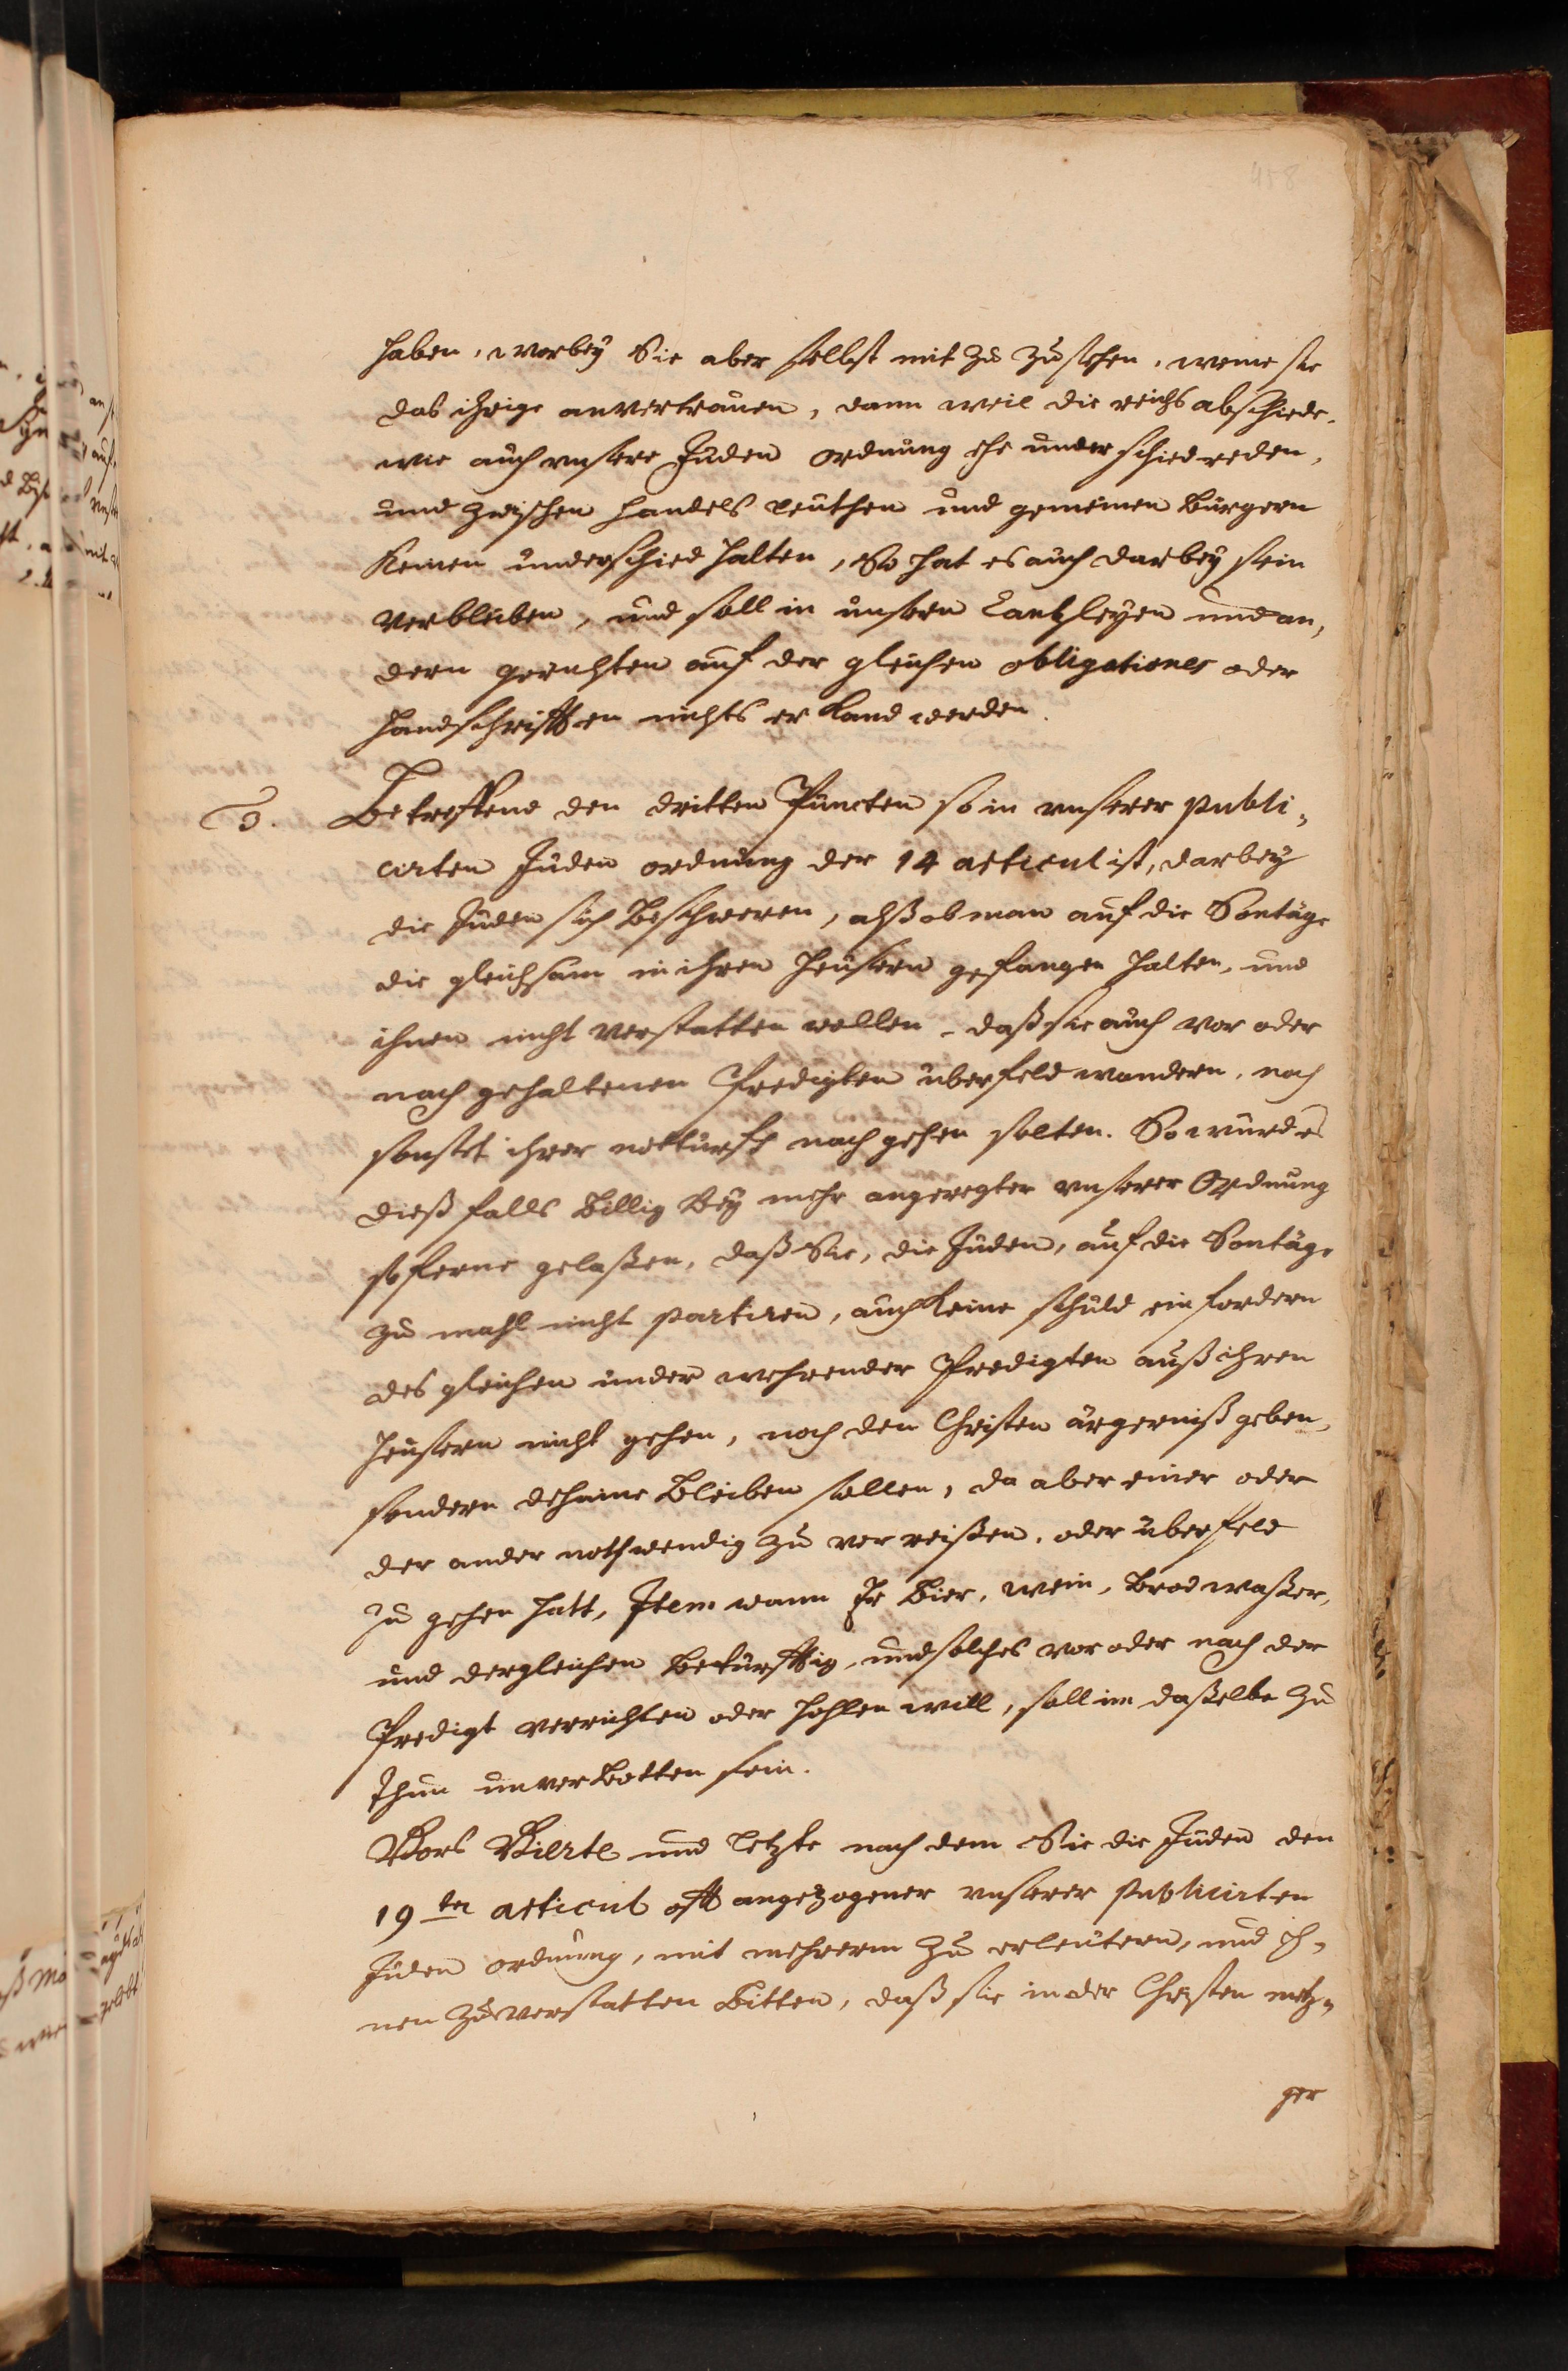 458
haben, worbey Sie aber selbst mit zu zusehen, weme sie
das ihrige anvertrauen, dann weil die reichs abschiede,
wie auch unsere Juden ordnung ohe underschied reden,
und zwischen handels leuthen und gemeinen bürgern
Keinen underschied halten, So hat es auch darbey sein
verbleiben, und soll in unsern Cantzleyen und an,
dern gerichten auf der gleichen obligationes oder
handschrifften nichts er Kand werden.
3. Betreffend den dritten Puncten so in unserer publi,
cirten Juden ordnung der 14 articul ist, darbey
die Juden sich beschweren, alß ob man auf die Sontäge
die gleichsam in ihren heusern gefangen halten, und
ihnen nicht verstatten wollen, daß sie auch vor oder
nach gehaltenen Predigten über feld wandern, noch
sonsst ihrer notturfft nach gehen solten. So würd es
dieß falls billig bey mehr angeregter unserer Ordnung
so ferne gelaßen, daß Sie, die Juden, auf die Sontäge
zu mahl nicht partiren, auch Keine schuld ein fordern
des gleichen under wehrender Predigten auß ihren
heusern nicht gehen, noch den Christen ärgerniß geben,
sondern deheime bleiben sollen, da aber einer oder
der ander nothwendig zu ver reißen, oder über feld
zu gehen hatt, Item wann Er bier, wein, brod waßer,
und dergleichen bedürfftig, und solches vor oder nach der
Predigt verrichten oder hohlen will, soll im daßelbe zu
thun unverbotten sein.
Vors Vierte und letzte nach dem Sie die Juden den
19ten articul offt angezogener unserer publicirten
Juden ordnung, mit mehrerm zu erleutern, und ih,
nen zu verstatten bitten, daß sie in der Christen metz,
ger